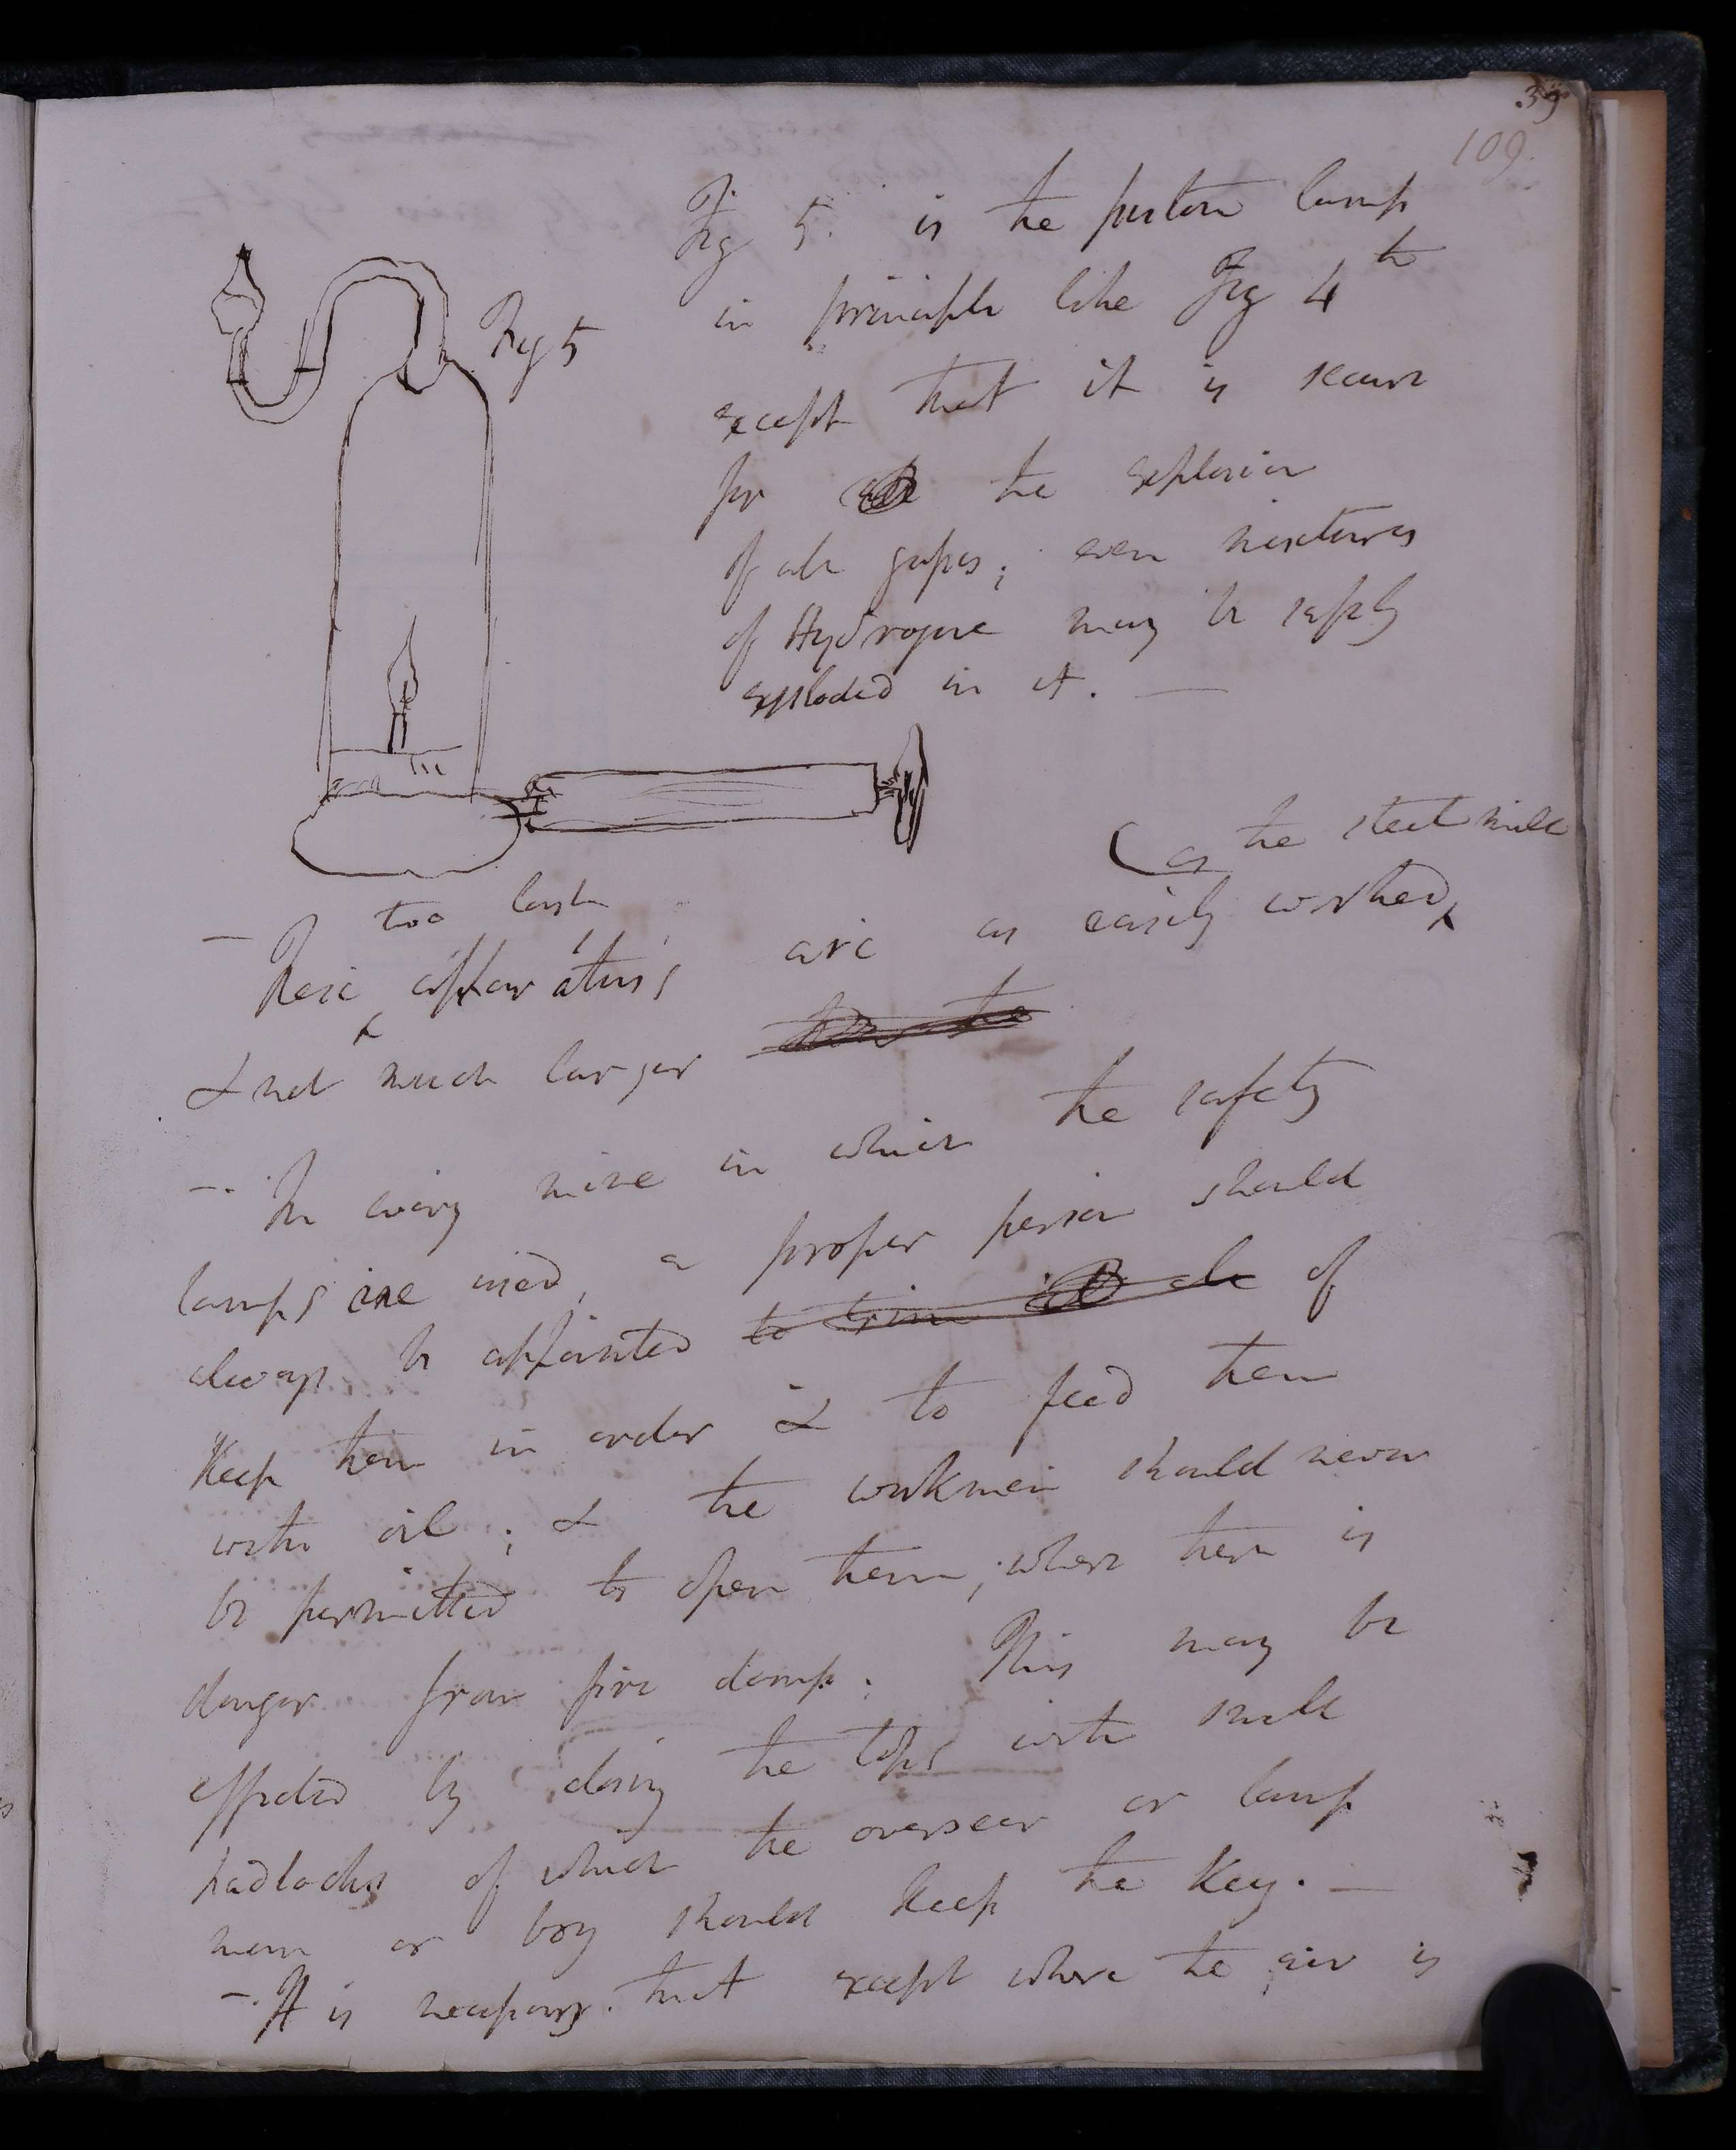 39
109.
Fig 5. is the piston lamp
in principle like Fig 4th
Fig 5
except that it is secure
for the explosion
of all gases; even mixtures
of Hydrogene may be safely
exploded in it. —
as the steel mill
too last
— These apparatus's are as easily worked
& not much larger than the
—. In every mine in which the safety
lamps are used, a proper person should
always be appointed to trim all of
Keep them in order & to feed them
with oil; & the workmen should never
be permitted to open them; where there is
danger from fire damp. This may be
effected by closing the tops with small
padlocks of which the overseer or lamp
man or boy should keep the Key. —
—. It is necessary that except where the air is